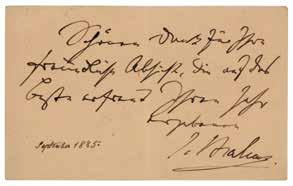 Schönen Dank für Ihre
freundliche Absicht, die auf das
beste erfreut Ihren sehr
ergebenen
J. Brahms.
September 1885.